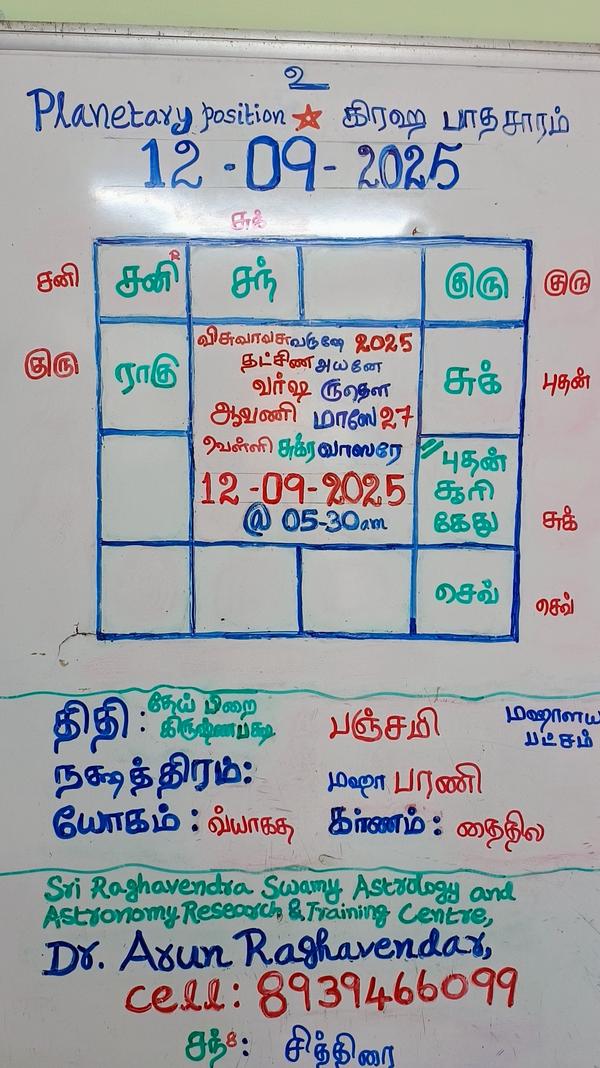 உ
Planetary position ★ கிரஹ பாதசாரம்
12-09-2025
சுக்
சனி சனி R சந் குரு குரு
குரு ராகு விசுவாவசுவருஷே 2025 சுக் புதன்
தட்சிண அயனே
வர்ஷ ருதௌ
ஆவணி மாஸே 27
வெள்ளி சுக்ரவாஸரே புதன்
12-09-2025 சூரி சுக்
@ 05-30am கேது
செவ் செவ்
திதி : தேய் பிறை பஞ்சமி மஹாளய
கிருஷ்ணபக்ஷ பட்சம்
நக்ஷத்திரம்: மஹா பரணி
யோகம் : வ்யாகத கர்ணம் : தைதில
Sri Raghavendra Swamy Astrology and
Astronomy Research & Training Centre,
Dr. Arun Raghavendar,
cell: 8939466099
சந் 8: சித்திரை